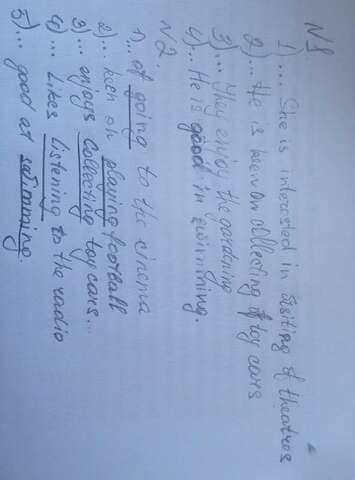 N1
1)... She is interested in visiting of theatres
2)... He is keen on collecting of toy cars
3)... They enjoy the gardening
4)... He is good in swimming.
N2
1)... of going to the cinema
2)... keen on playing football
3)... enjoys collecting toy cars...
4)... likes listening to the radio
5)... good at swimming.